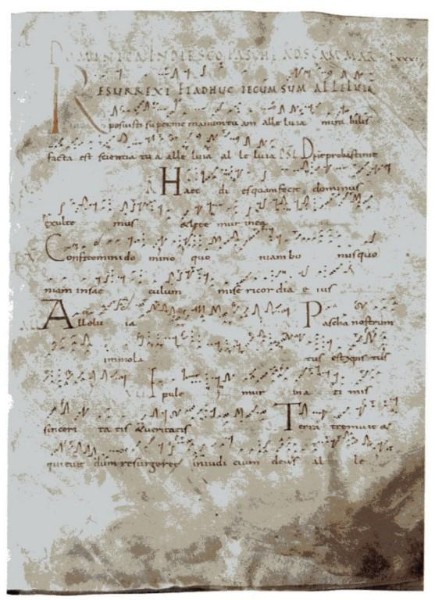 RESURREXI ET ADHUC TECUM SUM ALLELUIA
posuisti super me manum tuam alle luia mira bilis
facta est scientia tua alle luia al le luia PSL Dne probasti me
Haec di es quam fecit dominus
exulte mus & lete mur in ea
Confitemini do mino quo niam bo nus quo
niam in sae culum mise ricor dia e ius
Allelu ia Pascha nostrum
immola tus est xpic tus
Epule mur in a zi mis
sinceri ta tis & veritatis Terra tremuit &
quievit dum resurgeret in iudi cium deus al le